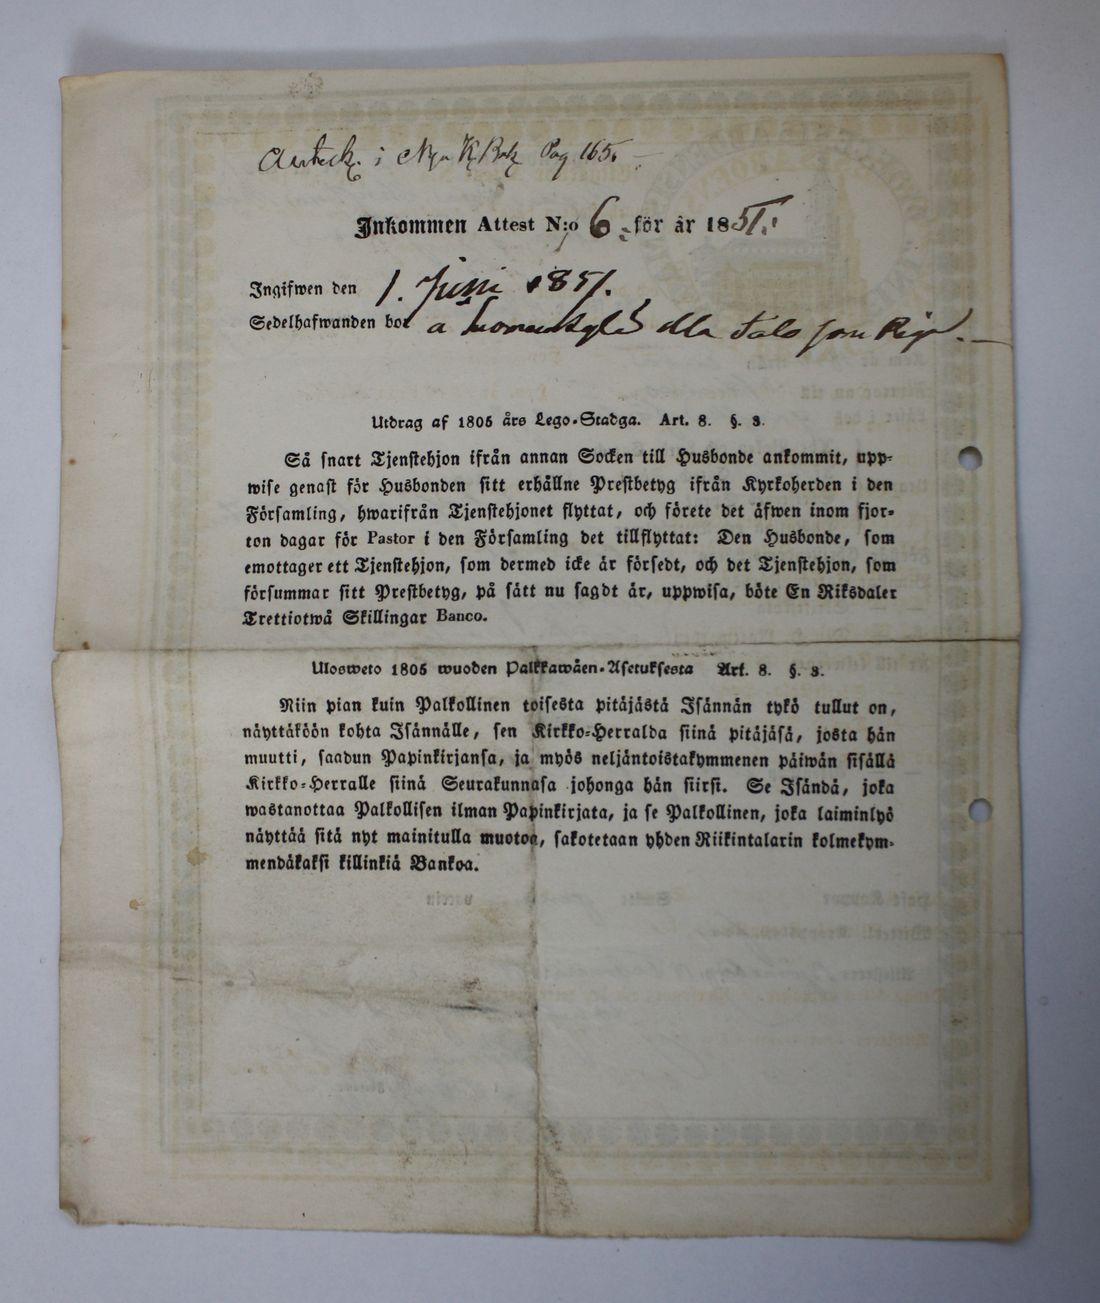 i Nya K Bok Pag 165.
Inkommen Attest N:o 6. för år 1851.
Ingifwen den 1. Juni 1851.
Sedelhafwanden bor a
Utdrag af 1805 års Lego-Stadga. Art. 8. §. 3.
Så snart Tjenstehjon ifrån annan Socken till Husbonde ankommit, upp-
wise genast för Husbonden sitt erhållne Prestbetyg ifrån Kyrkoherden i den
Församling, hwarifrån Tjenstehjonet flyttat, och förete det äfwen inom fjor-
ton dagar för Pastor i den Församling det tillflyttat: Den Husbonde, som
emottager ett Tjenstehjon, som dermed icke är försedt, och det Tjenstehjon, som
försummar sitt Prestbetyg, på sätt nu sagdt är, uppwisa, böte En Riksdaler
Trettiotwå Skillingar Banco.
Ulosweto 1805 wuoden Palkkawäen-Asetuksesta Art. 8. §. 3.
Niin pian kuin Palkollinen toisesta pitäjästä Isännän tykö tullut on,
näyttäköön kohta Isännälle, sen Kirkko-Herralda siinä pitäjäsä, josta hän
muutti, saadun Papinkirjansa, ja myös neljäntoistakymmenen päiwän sisällä
Kirkko-Herralle siinä Seurakunnasa johonga hän siirsi. Se Isändä, joka
wastanottaa Palkollisen ilman Papinkirjata, ja se Palkollinen, joka laiminlyö
näyttää sitä nyt mainitulla muotoa, sakotetaan yhden Riikintalarin kolmekym-
mendäkaksi killinkiä Bankoa.